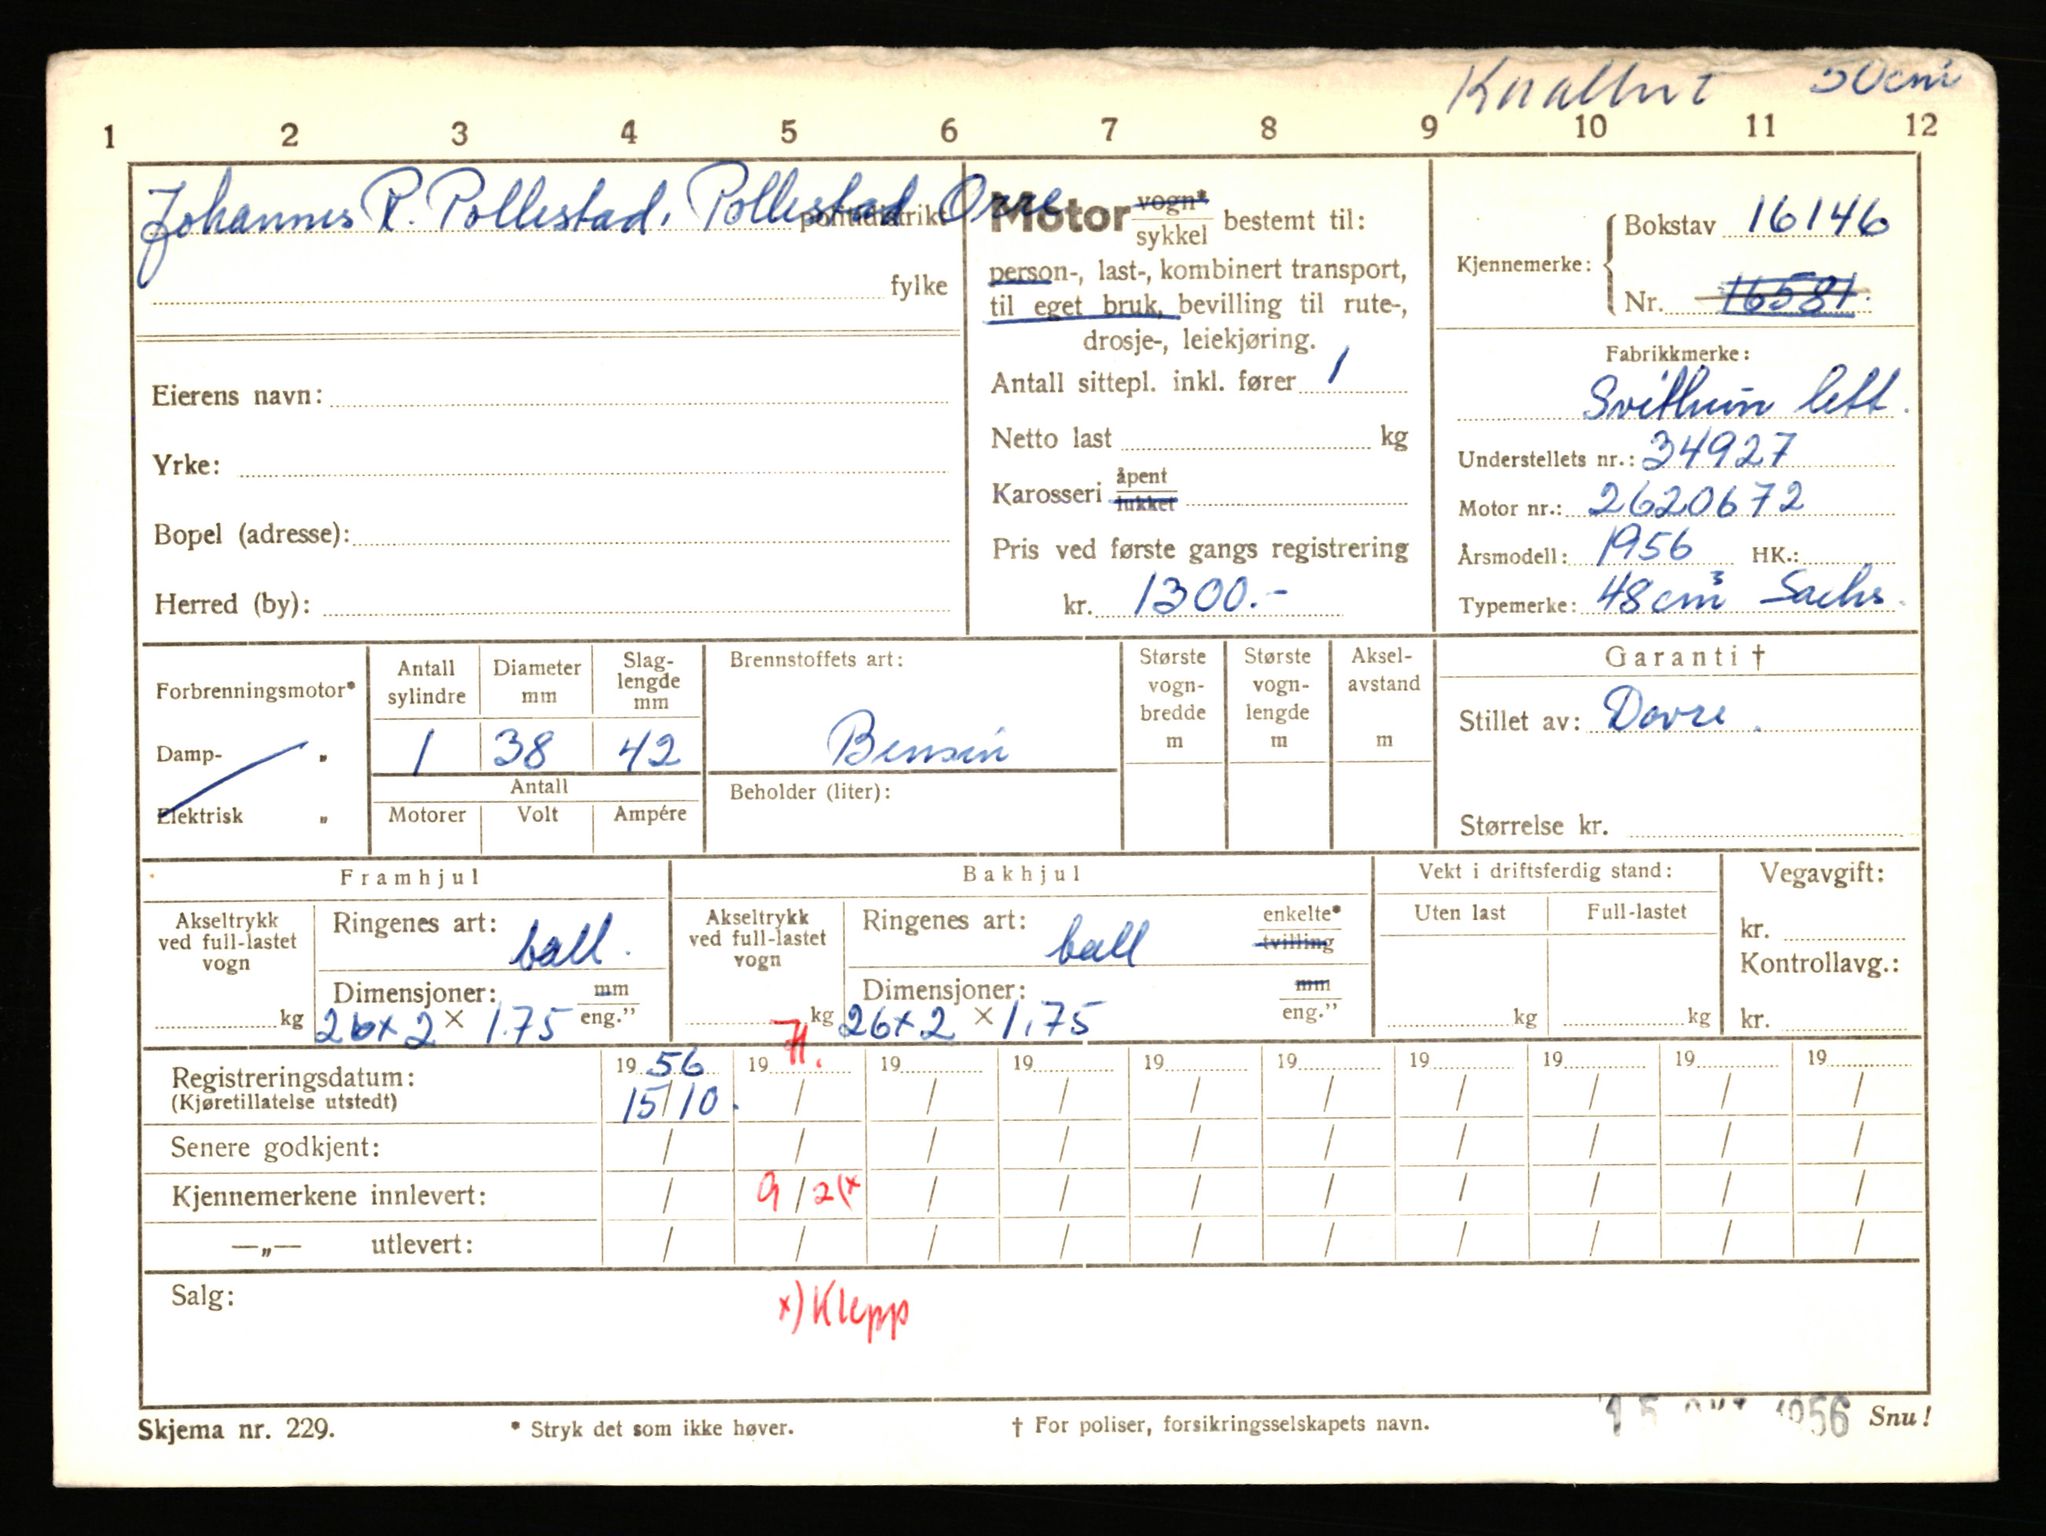 Knallert 50cm³
1 2 3 4 5 6 7 8 9 10 11 12
Johannes R. Pollestad, Pollestad Orre
politidistrikt
fylke
Eierens navn:
Yrke:
Bopel (adresse):
Herred (by):
Motor vogn* sykkel bestemt til:
person-, last-, kombinert transport,
til eget bruk, bevilling til rute-,
drosje-, leiekjøring.
Antall sittepl. inkl. fører 1
Netto last kg
Karosseri åpent lukket
Pris ved første gangs registrering
kr. 1300.-
Kjennemerke: Bokstav 16146
Nr. 16581.
Fabrikkmerke:
Svithun lett.
Understellets nr.: 34927
Motor nr.: 2620672
Årsmodell: 1956 HK.:
Typemerke: 48 cm³ Sachs.
Forbrenningsmotor*
Damp- „
Elektrisk „
Antall sylindre
Diameter mm
Slag-lengde mm
1 38 42
Antall
Motorer Volt Ampére
Brennstoffets art:
Bensin
Beholder (liter):
Største vogn-bredde m
Største vogn-lengde m
Aksel-avstand m
Garanti †
Stillet av: Dovre.
Størrelse kr.
Framhjul
Akseltrykk ved full-lastet vogn
kg
Ringenes art: ball.
Dimensjoner: mm eng."
26x2 × 1.75
Bakhjul
Akseltrykk ved full-lastet vogn
kg
Ringenes art: ball enkelte* tvilling
Dimensjoner: mm eng."
26x2 × 1.75
Vekt i driftsferdig stand:
Uten last Full-lastet
kg kg
Vegavgift:
kr.
Kontrollavg.:
kr.
19 56 19 71. 19 19 19 19 19 19 19 19
Registreringsdatum: 15/10. / / / / / / / / /
(Kjøretillatelse utstedt)
Senere godkjent: / / / / / / / / / /
Kjennemerkene innlevert: / 9/2(x / / / / / / / /
—„— utlevert: / / / / / / / / / /
Salg:
x) Klepp
15 OKT 1956
Skjema nr. 229. * Stryk det som ikke høver. † For poliser, forsikringsselskapets navn. Snu!